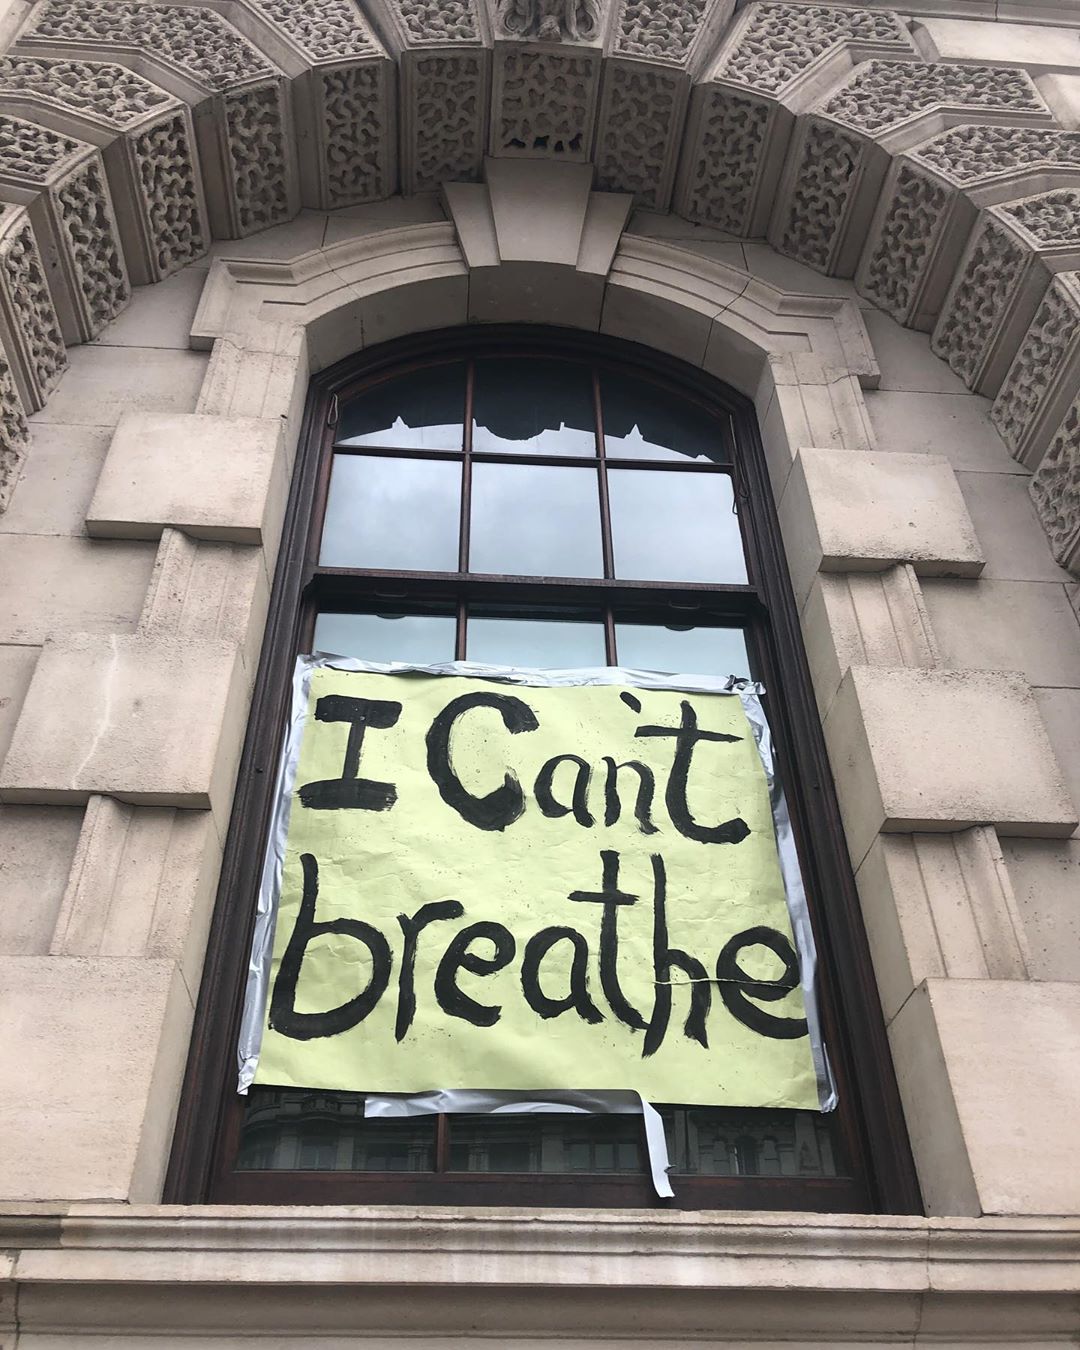 I Can't
breathe